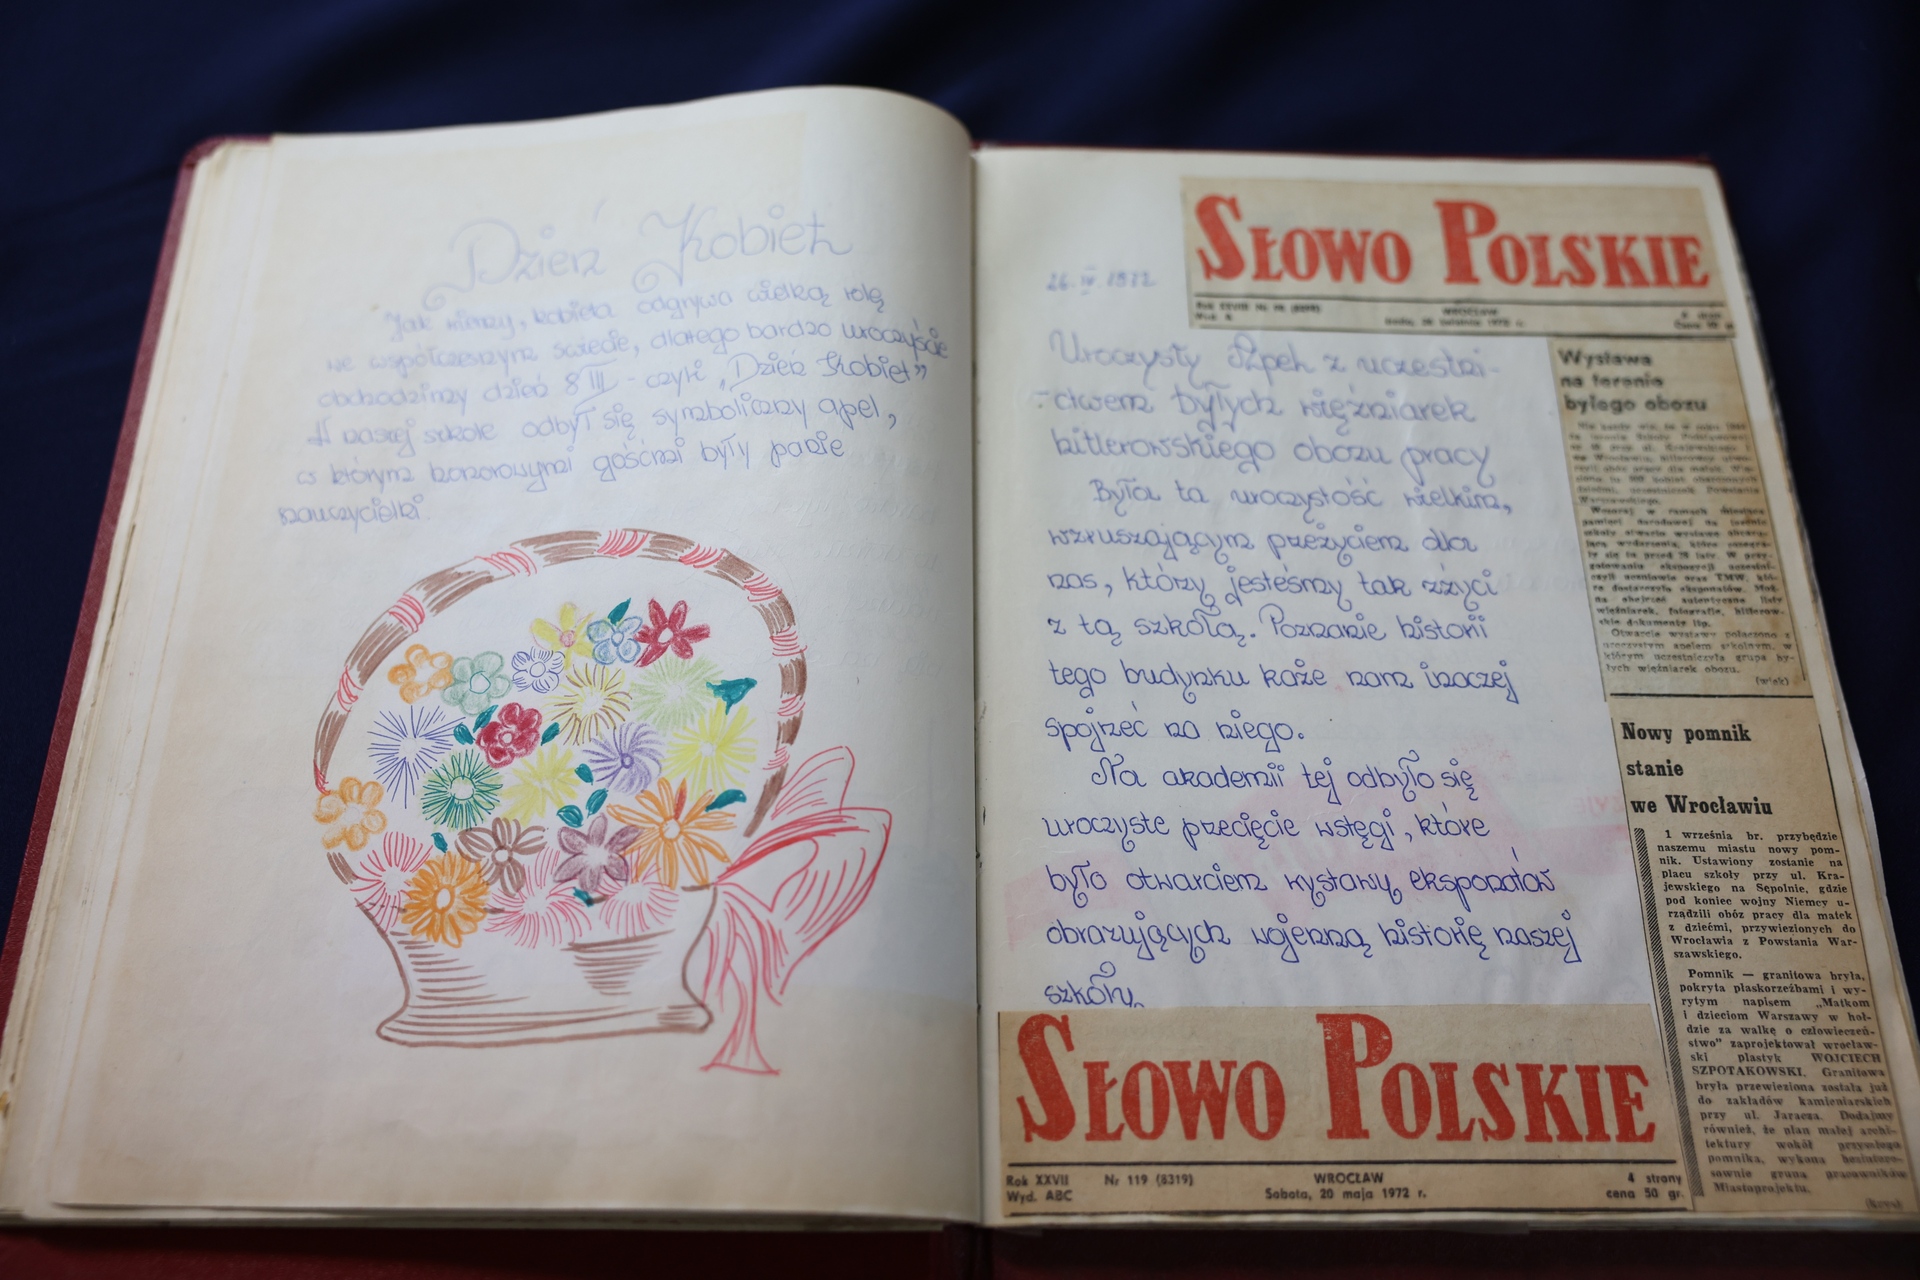 Dzień Kobiet
Jak wiemy, kobieta odgrywa wielką rolę
we współczesnym świecie, dlatego bardzo uroczyście
obchodzimy dzień 8 III - czyli „Dzień Kobiet”
W naszej szkole odbył się symboliczny apel,
w którym honorowymi gośćmi były panie
nauczycielki.
SŁOWO POLSKIE
WROCŁAW
26. IV. 1972
Uroczysty Apel z uczestni-
-ctwem byłych więźniarek
hitlerowskiego obozu pracy
Była ta uroczystość wielkim,
wzruszającym przeżyciem dla
nas, którzy jesteśmy tak zżyci
z tą szkołą. Poznanie historii
tego budynku każe nam inaczej
spojrzeć na niego.
Na akademii tej odbyło się
uroczyste przecięcie wstęgi, które
było otwarciem wystawy eksponatów
obrazujących wojenną historię naszej
szkoły.
Wystawa
na terenie
byłego obozu
Otwarcie wystawy połączono z
uroczystym apelem szkolnym, w
którym uczestniczyła grupa by-
łych więźniarek obozu.
(wiak)
Nowy pomnik
stanie
we Wrocławiu
1 września br. przybędzie
naszemu miastu nowy pom-
nik. Ustawiony zostanie na
placu szkoły przy ul. Kra-
jewskiego na Sępolnie, gdzie
pod koniec wojny Niemcy u-
rządzili obóz pracy dla matek
z dziećmi, przywiezionych do
Wrocławia z Powstania War-
szawskiego.
Pomnik — granitowa bryła,
pokryta płaskorzeźbami i wy-
rytym napisem „Matkom
i dzieciom Warszawy w hoł-
dzie za walkę o człowieczeń-
stwo” zaprojektował wrocław-
ski plastyk WOJCIECH
SZPOTAKOWSKI. Granitowa
bryła przewieziona została już
do zakładów kamieniarskich
przy ul. Jaracza. Dodajmy
również, że plan małej archi-
tektury wokół przyszłego
pomnika, wykona bezintere-
sownie grupa pracowników
Miastoprojektu.
SŁOWO POLSKIE
Rok XXVII Nr 119 (8319) WROCŁAW 4 strony
Wyd. ABC Sobota, 20 maja 1972 r. cena 50 gr.